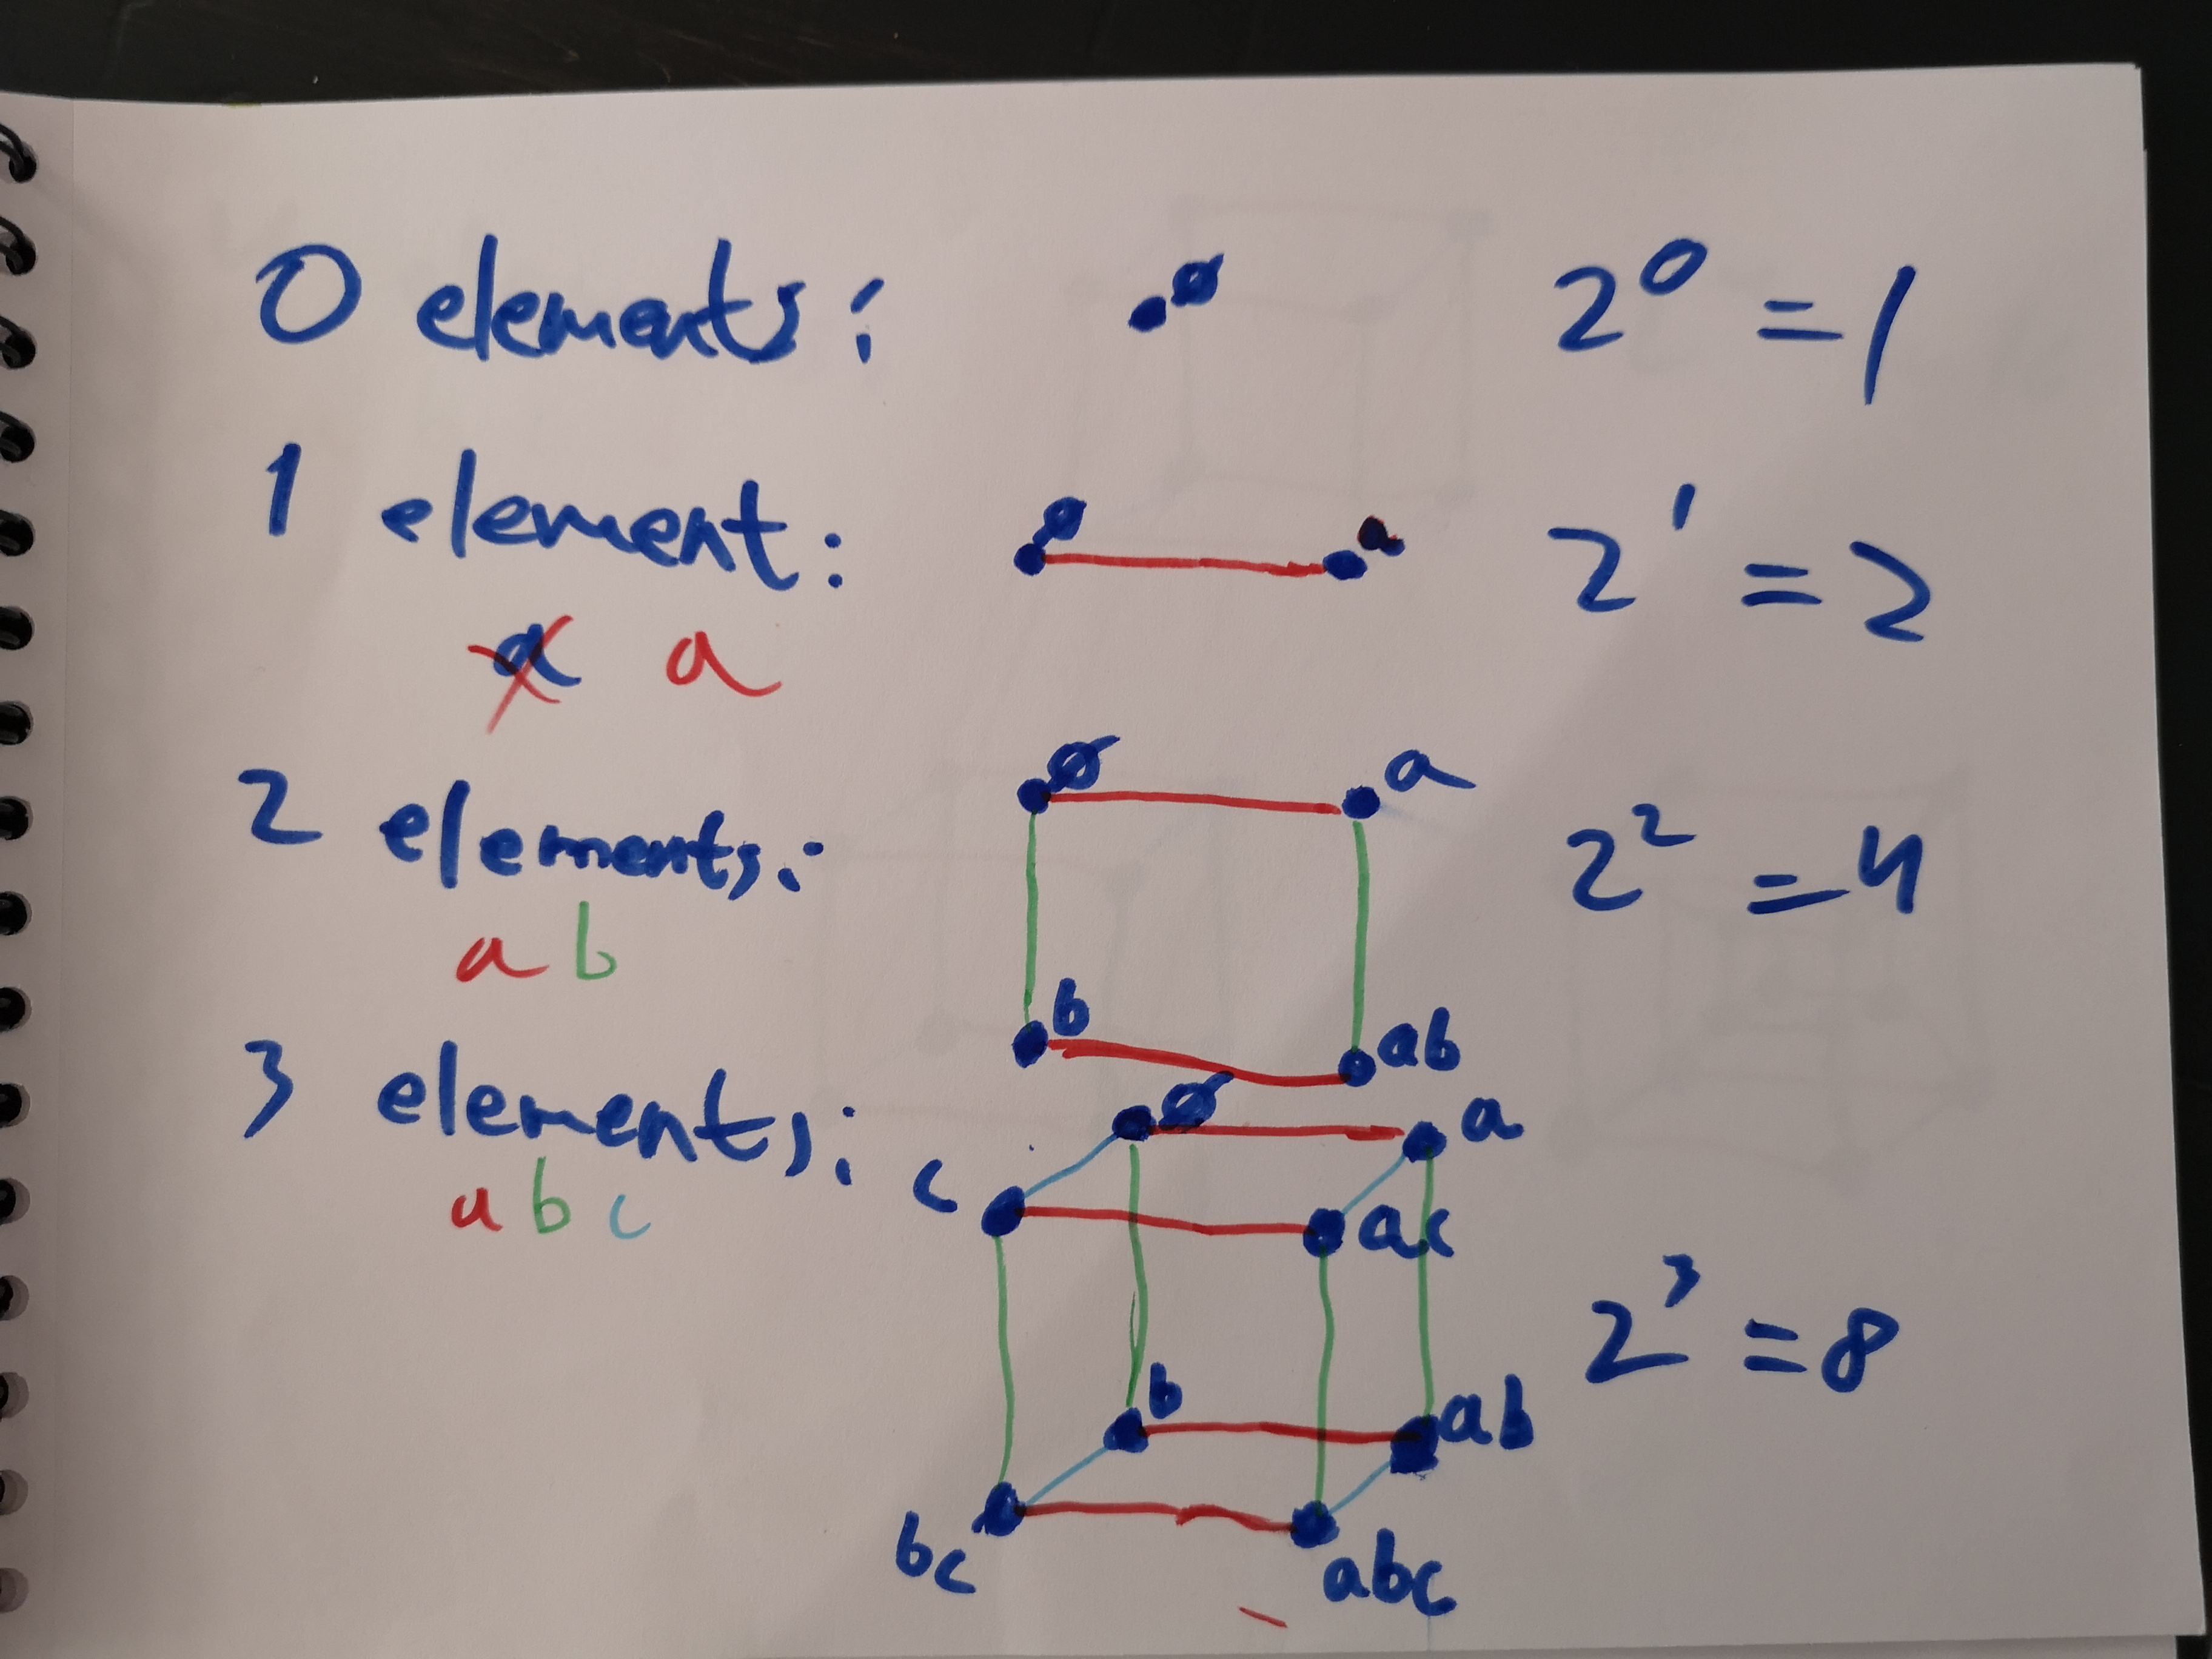 0 elements: ø 2⁰ = 1
1 element: ø a 2¹ = 2
a a
2 elements: ø a 2² = 4
a b
b ab
3 elements: ø a
a b c
c ac
2³ = 8
b ab
bc abc